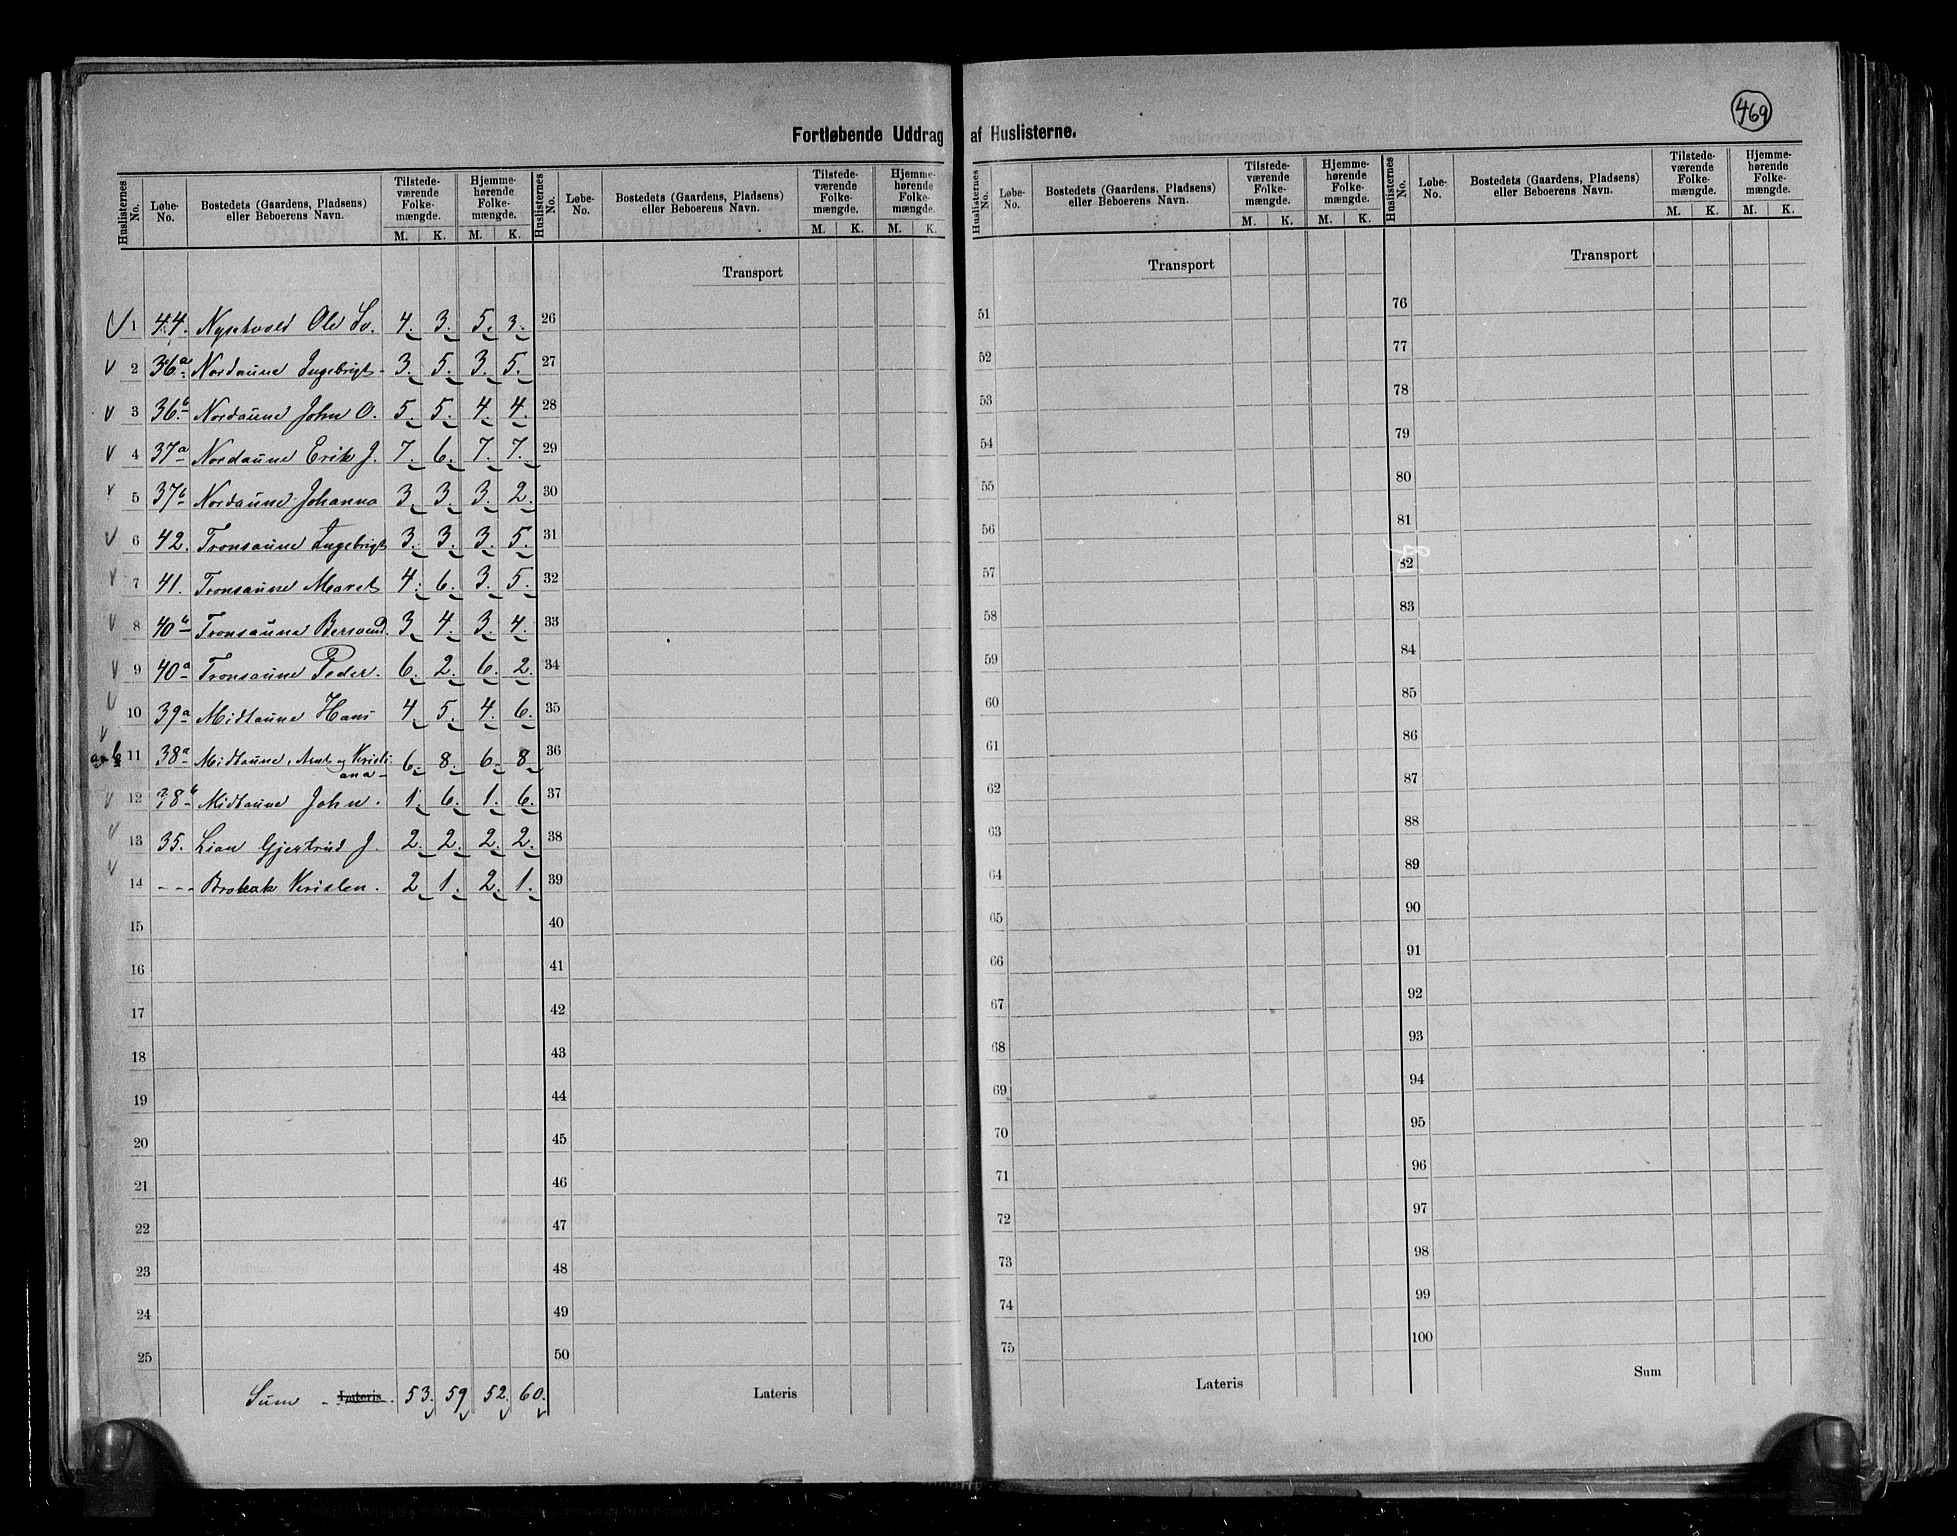 469
Fortløbende Uddrag af Huslisterne.
Huslisternes No. Løbe-No. Bostedets (Gaardens, Pladsens) eller Beboerens Navn. Tilstede-værende Folke-mængde. M. K. Hjemme-hørende Folke-mængde. M. K.
Huslisternes No. Løbe-No. Bostedets (Gaardens, Pladsens) eller Beboerens Navn. Tilstede-værende Folke-mængde. M. K. Hjemme-hørende Folke-mængde. M. K.
Huslisternes No. Løbe-No. Bostedets (Gaardens, Pladsens) eller Beboerens Navn. Tilstede-værende Folke-mængde. M. K. Hjemme-hørende Folke-mængde. M. K.
Huslisternes No. Løbe-No. Bostedets (Gaardens, Pladsens) eller Beboerens Navn. Tilstede-værende Folke-mængde. M. K. Hjemme-hørende Folke-mængde. M. K.
Transport Transport Transport
1 44. Nysetvold Ole Sv. 4. 3. 5. 3. 26 51 76
2 36a Nordaune Ingebrigt 3. 5. 3. 5. 27 52 77
3 36b Nordaune John O. 5. 5. 4. 4. 28 53 78
4 37a Nordaune Erik J. 7. 6. 7. 7. 29 54 79
5 37b Nordaune Johanna 3. 3. 3. 2. 30 55 80
6 42. Tronsaune Ingebrigt 3. 3. 3. 5. 31 56 81
7 41. Tronsaune Maret 4. 6. 3. 5. 32 57 82
8 40b Tronsaune Bersvend. 3. 4. 3. 4. 33 58 83
9 40a Tronsaune Peder. 6. 2. 6. 2. 34 59 84
10 39a Midtaune Hans 4. 5. 4. 6. 35 60 85
11 38a Midtaune, Arnt og Kristiana 6. 8. 6. 8. 36 61 86
12 38b Midtaune John. 1. 6. 1. 6. 37 62 87
13 35. Lian Gjertrud J. 2. 2. 2. 2. 38 63 88
14 - - - Brekak Kristen. 2. 1. 2. 1. 39 64 89
15 40 65 90
16 41 66 91
17 42 67 92
18 43 68 93
19 44 69 94
20 45 70 95
21 46 71 96
22 47 72 97
23 48 73 98
24 49 74 99
25 50 75 100
Sum - Lateris. 53. 59 52. 60. Lateris Lateris Sum